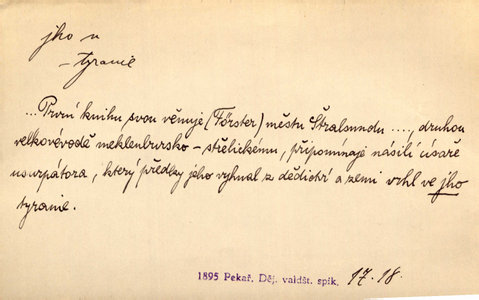 jho n
– tyranie
... První knihu svou věnuje (Förster) městu Štralsundu ...., druhou
velkovévodě meklenbursko – střelickému, připomínaje násilí císaře
usurpátora, který předky jeho vyhnal z dědictví a zemi vrhl ve jho
tyranie.
1895 Pekař, Děj. valdšt. spik. 17.18.